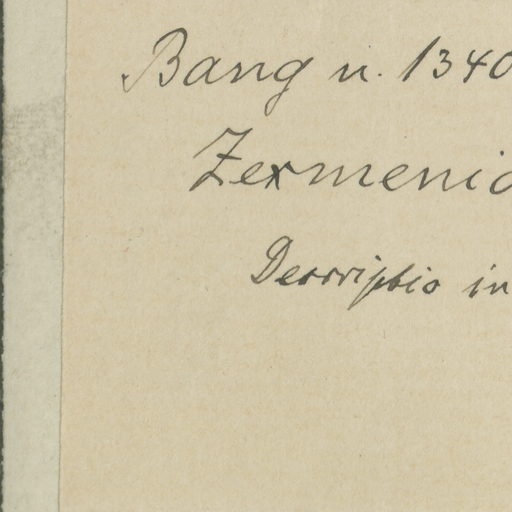 Bang n. 1340
Zexmenia
Descriptio in